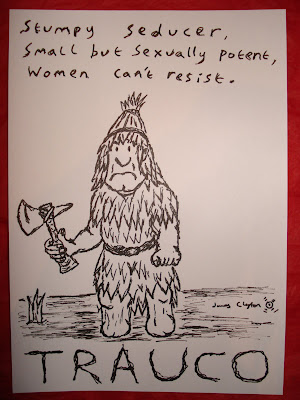 Stumpy Seducer,
Small but Sexually Potent,
Women can't resist.
James Clayton
TRAUCO